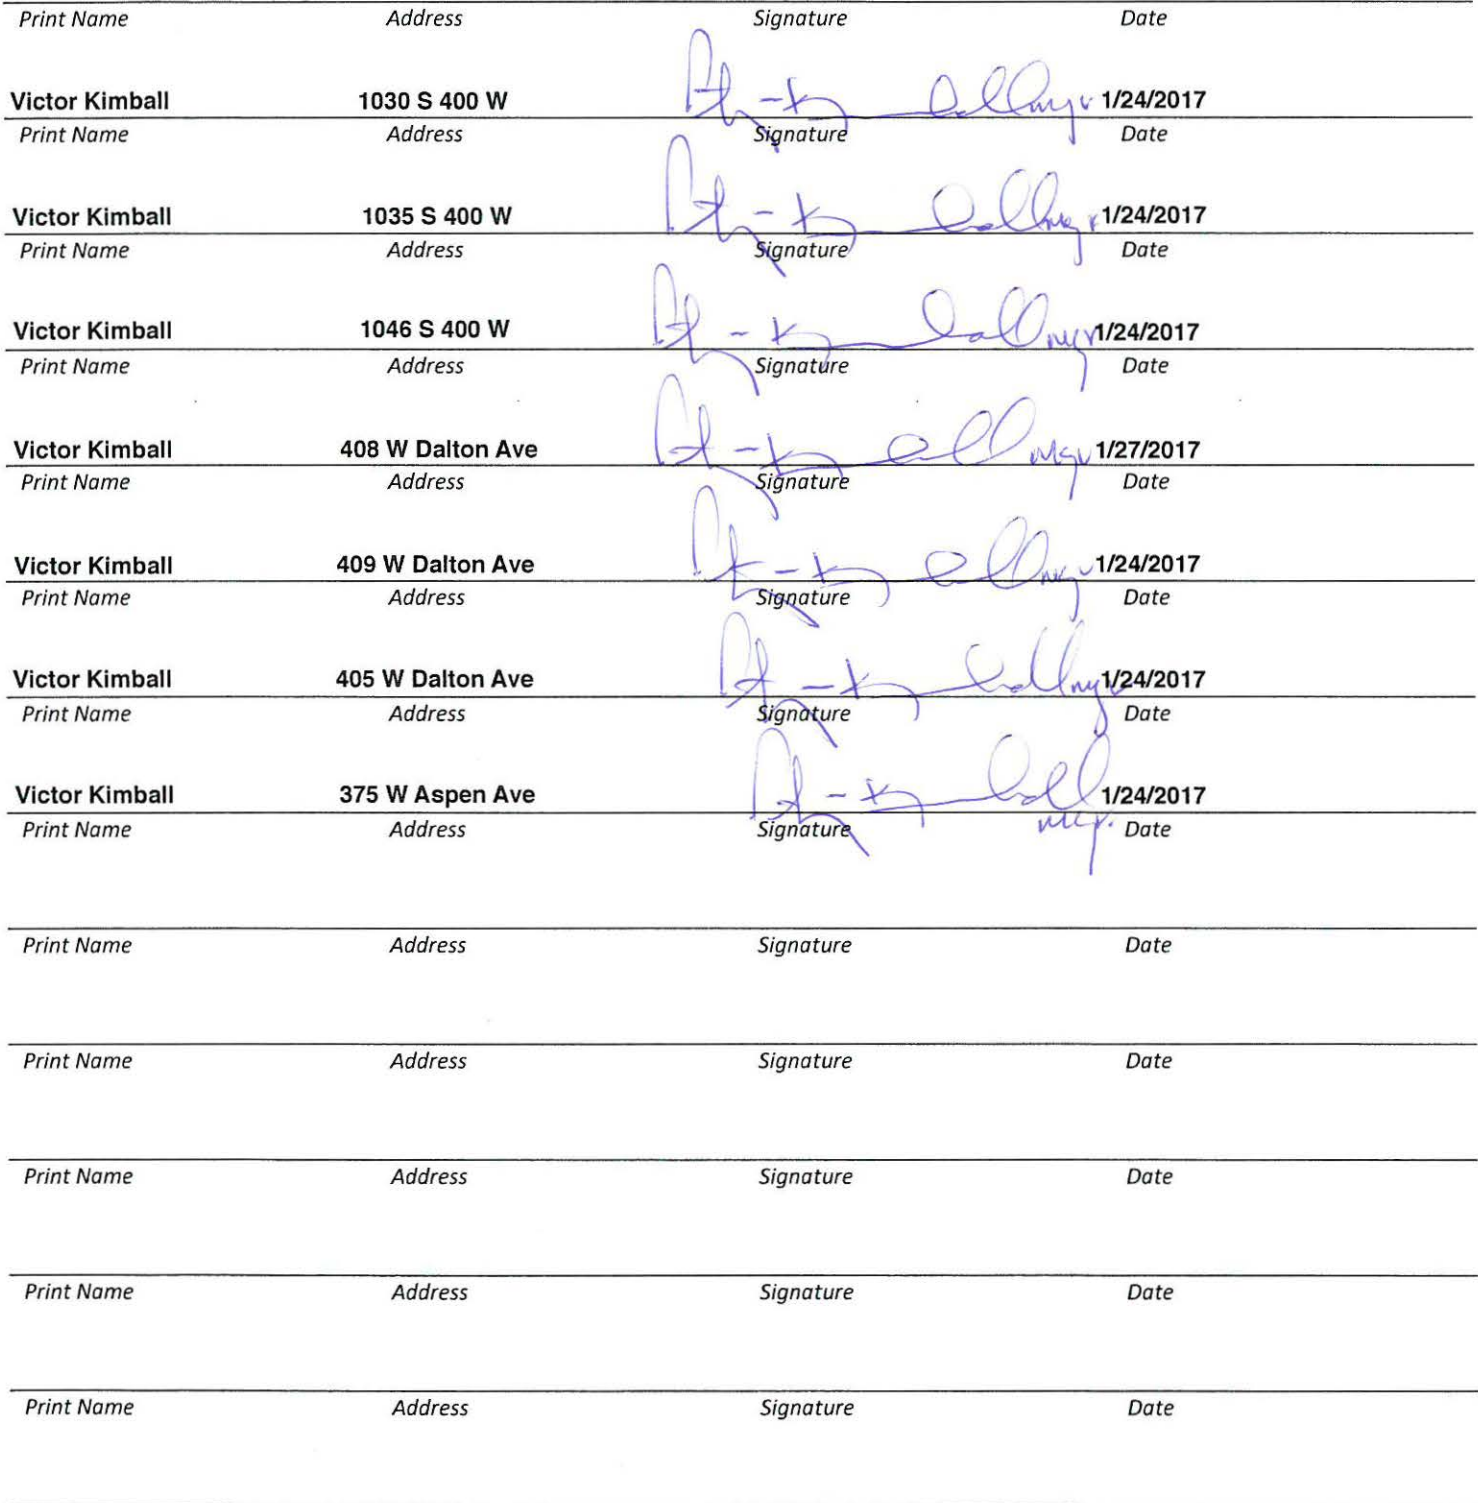 Print Name Address Signature Date
Victor Kimball 1030 S 400 W 1/24/2017
Print Name Address Signature Date
Victor Kimball 1035 S 400 W 1/24/2017
Print Name Address Signature Date
Victor Kimball 1046 S 400 W 1/24/2017
Print Name Address Signature Date
Victor Kimball 408 W Dalton Ave 1/27/2017
Print Name Address Signature Date
Victor Kimball 409 W Dalton Ave 1/24/2017
Print Name Address Signature Date
Victor Kimball 405 W Dalton Ave 1/24/2017
Print Name Address Signature Date
Victor Kimball 375 W Aspen Ave 1/24/2017
Print Name Address Signature Date
Print Name Address Signature Date
Print Name Address Signature Date
Print Name Address Signature Date
Print Name Address Signature Date
Print Name Address Signature Date